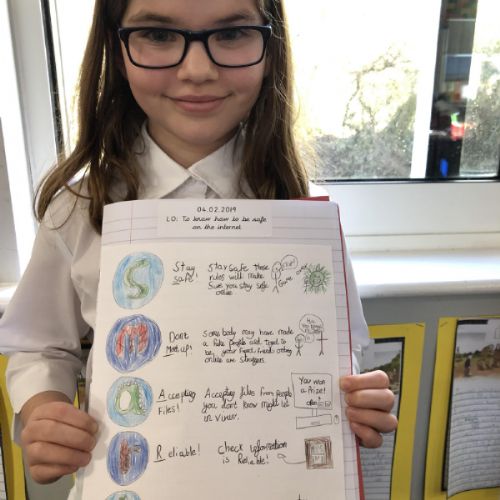 04.02.2019
LO: To know how to be safe
on the internet
S
Stay
safe!
Stay safe these
rules will make
Sure you stay safe
online
Game over
M
Dont
Meet up!
Some body may have made
a fake people and
be your friend, friends
online are strangers.
a
Accepting
Files!
Accepting files from people
you don't know might let
in Viruses.
You won
a Prize!
R
Reliable!
check information
is Reliable!